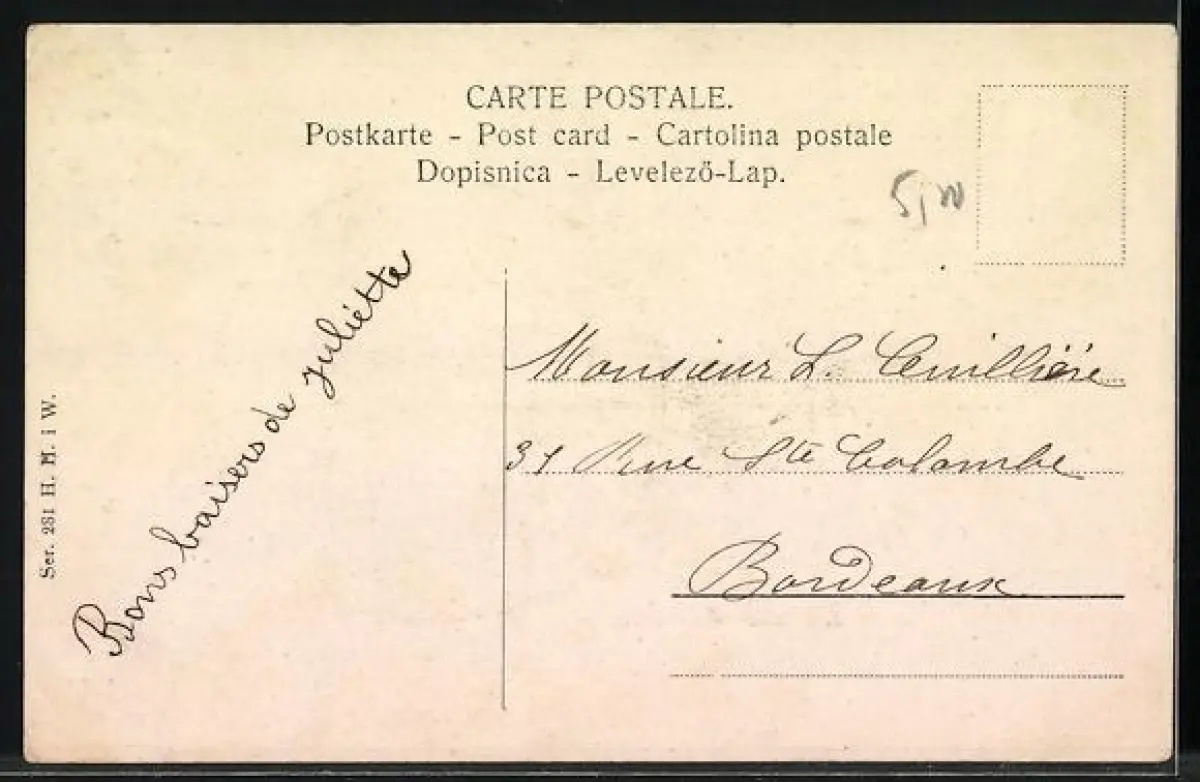 CARTE POSTALE.
Postkarte - Post card - Cartolina postale
Dopisnica - Levelező-Lap.
Bons baisers de Juliétte
Monsieur L.
31 Rue Ste Colombe
Bordeaux
Ser. 281 H. M. i W.